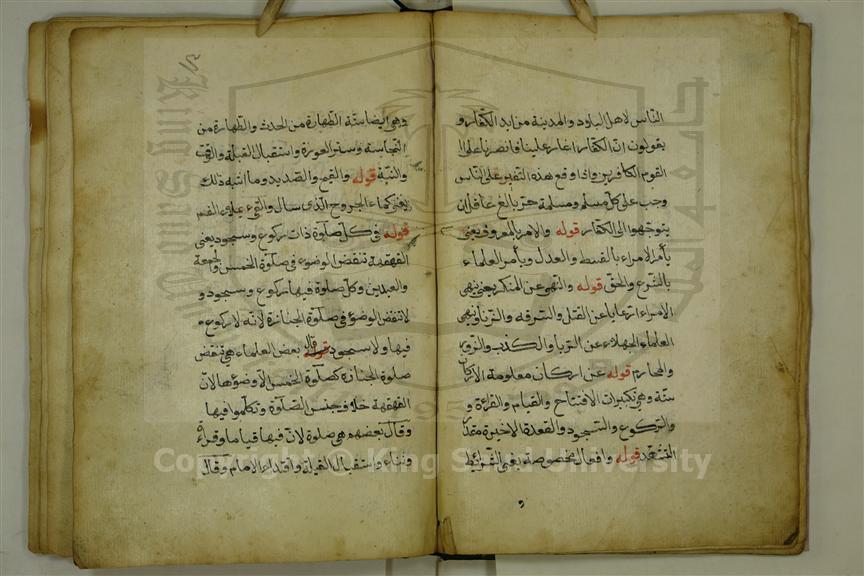 الناس لاهل البلود والمدينة من ايد الكفار و
يقولون انّ الكفار اغار علينا فانصرنا على
القوم الكافرين واذا وقع هذه النفير على الناس
وجب على كلّ مسلم ومسلمة حرّ بالغ عاقل ان
يتوجّهوا الى الكفار قوله والامر بالمعروف يعنى
يأمر الامراء بالقسط والعدل ويأمر العلماء
بالشرع والحق قوله والنهى عن المنكر يعنى ينهى
الامراء الرعايا عن القتل والسرقه والزنا وينهى
العلماء الجهلاء عن الربا والكذب والزور
والمحارم قوله عن اركان معلومة الاركان
ستّة وهى تكبيرات الافتتاح والقيام والقراءة و
والركوع والسجود والقعدة الاخيرة مقدار
التشهّد قوله وافعال مخصوصة يعنى الشرائط
وهى ايضا ستّة الطهارة من الحدث والطهارة من
النجاسة وستر العورة واستقبال القبلة والوقت
والنيّة قوله والقيح والصديد وما اشبه ذلك
يعنى كماء الجروح الّذى سال والقيء ملاء الفم
قوله فى كلّ صلوة ذات ركوع وسجود يعنى
القهقهة تنقض الوضوء فى صلوة الخمس والجمعة
والعيدين وكلّ صلوة فيها ركوع وسجود و
لا تنقض الوضوء فى صلوة الجنازة لانه لا ركوع
فيها ولا سجود قوله قال بعض العلماء هى تنقض
صلوة الجنازة كصلوة الخمس الا وضوءها لانّ
القهقهة خلاف جنس الصلوة وتكلّموا فيها
وقال بعضهم هى صلوة لانّ فيها قياما وقراءة
وثناء واستقبال القبلة واقتداء الامام وقال
Copyright © King Saud University